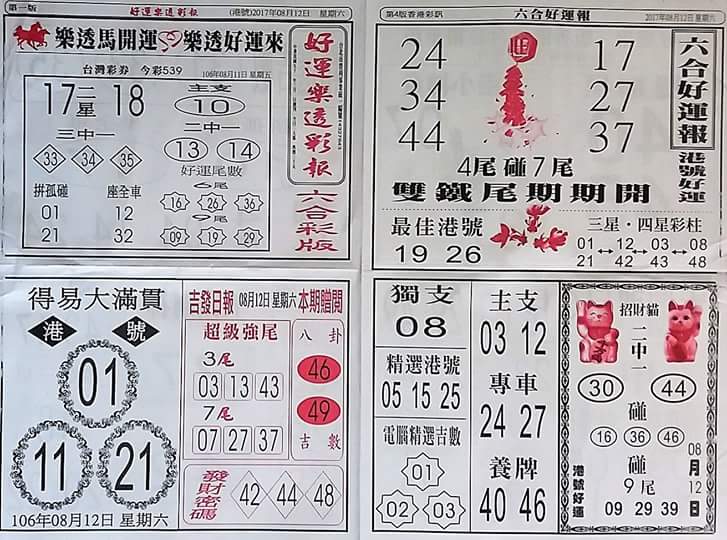 第一版
好運樂透彩報
(港號)2017年08月12日 星期六
樂透馬開運 樂透好運來
台灣彩券 今彩539
106年08月11日 星期五
17 二星 18
主支
10
三中一
33 34 35
二中一
13 14
好運尾數
6尾
16 26 36
9尾
09 19 29
拼孤碰
01
21
座全車
12
32
好運樂透彩報
六合彩版
第4版香港彩訊
六合好運報
2017年08月12日 星期六
24 17
34 27
44 37
4尾碰7尾
雙鐵尾期期開
最佳港號
19 26
三星·四星彩柱
01↔12↔03↔08
21 42↔43↔48
六合好運報
港號好運
得易大滿貫
港 號
01
11 21
106年08月12日 星期六
吉發日報 08月12日 星期六 本期贈閱
超級強尾
3尾
03 13 43
7尾
07 27 37
八卦
46
49
吉數
發財密碼
42 44 48
獨支
08
精選港號
05 15 25
電腦精選吉數
01
02 03
主支
03 12
專車
24 27
養牌
40 46
招財貓
二中一
30 44
碰
16 36 46
碰
9尾
09 29 39
港號好運
08月12日